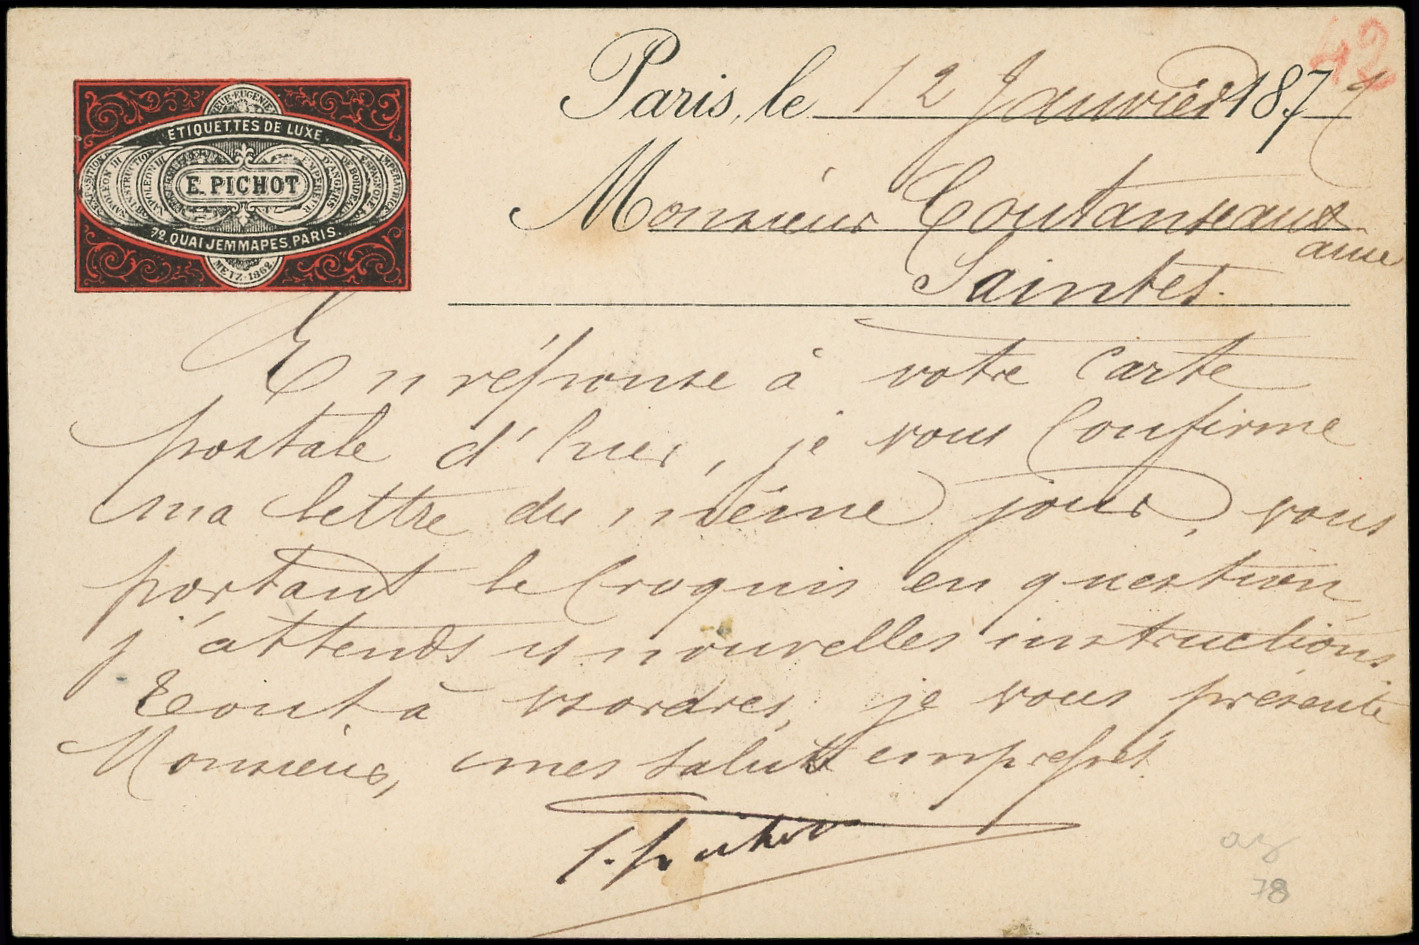 42
Paris, le 12 Janvier 1877
ETIQUETTES DE LUXE
E. PICHOT
72, QUAI JEMMAPES, PARIS.
METZ. 1862
Monsieur Coutanseaux
ainé
Saintes.
En réponse à votre Carte
postale d'hier, je vous Confirme
ma lettre du même jour, vous
portant le Croquis en question,
j'attends vs nouvelles instructions
Tout à vs ordres, je vous présente
Monsieur, mes saluts empressés
E. Pichot
78